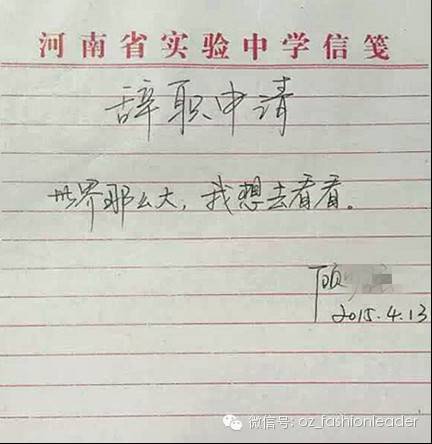 河南省实验中学信笺
辞职申请
世界那么大，我想去看看。
顾
2015.4.13
微信号: oz_fashionleader